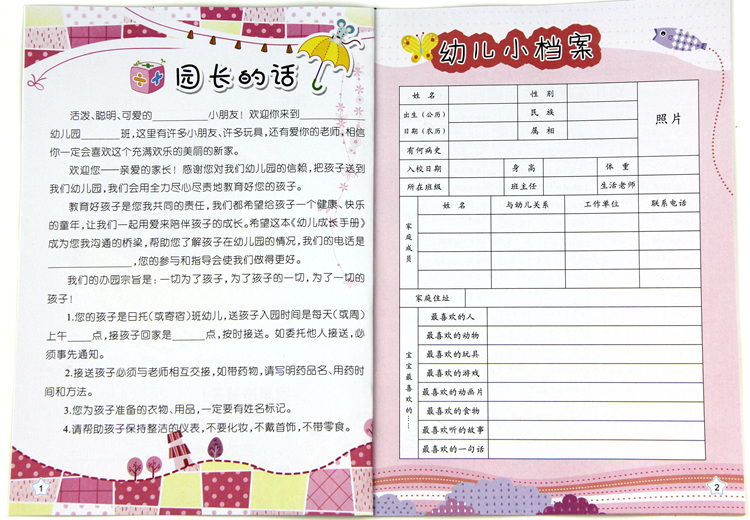 园长的话
活泼、聪明、可爱的__________小朋友！欢迎你来到____________
幼儿园_______班，这里有许多小朋友、许多玩具，还有爱你的老师，相信
你一定会喜欢这个充满欢乐的美丽的新家。
欢迎您——亲爱的家长！感谢您对我们幼儿园的信赖，把孩子送到
我们幼儿园，我们会用全力尽心尽责地教育好您的孩子。
教育好孩子是您我共同的责任，我们都希望给孩子一个健康、快乐
的童年，让我们一起用爱来陪伴孩子的成长。希望这本《幼儿成长手册》
成为您我沟通的桥梁，帮助您了解孩子在幼儿园的情况，我们的电话是
_______________，您的参与和指导会使我们做得更好。
我们的办园宗旨是：一切为了孩子，为了孩子的一切，为了一切的
孩子！
1.您的孩子是日托（或寄宿）班幼儿，送孩子入园时间是每天（或周）
上午____点，接孩子回家是______点，按时接送。如委托他人接送，必
须事先通知。
2.接送孩子必须与老师相互交接，如带药物，请写明药品名、用药时
间和方法。
3.您为孩子准备的衣物、用品，一定要有姓名标记。
4.请帮助孩子保持整洁的仪表，不要化妆，不戴首饰，不带零食。
1
幼儿小档案
姓名 性别
出生（公历） 民族 照片
日期（农历） 属相
有何病史
入校日期 身高 体重
所在班级 班主任 生活老师
姓名 与幼儿关系 工作单位 联系电话
家庭成员
家庭住址
宝宝最喜欢的……
最喜欢的人
最喜欢的动物
最喜欢的玩具
最喜欢的游戏
最喜欢的动画片
最喜欢的食物
最喜欢听的故事
最喜欢的一句话
2